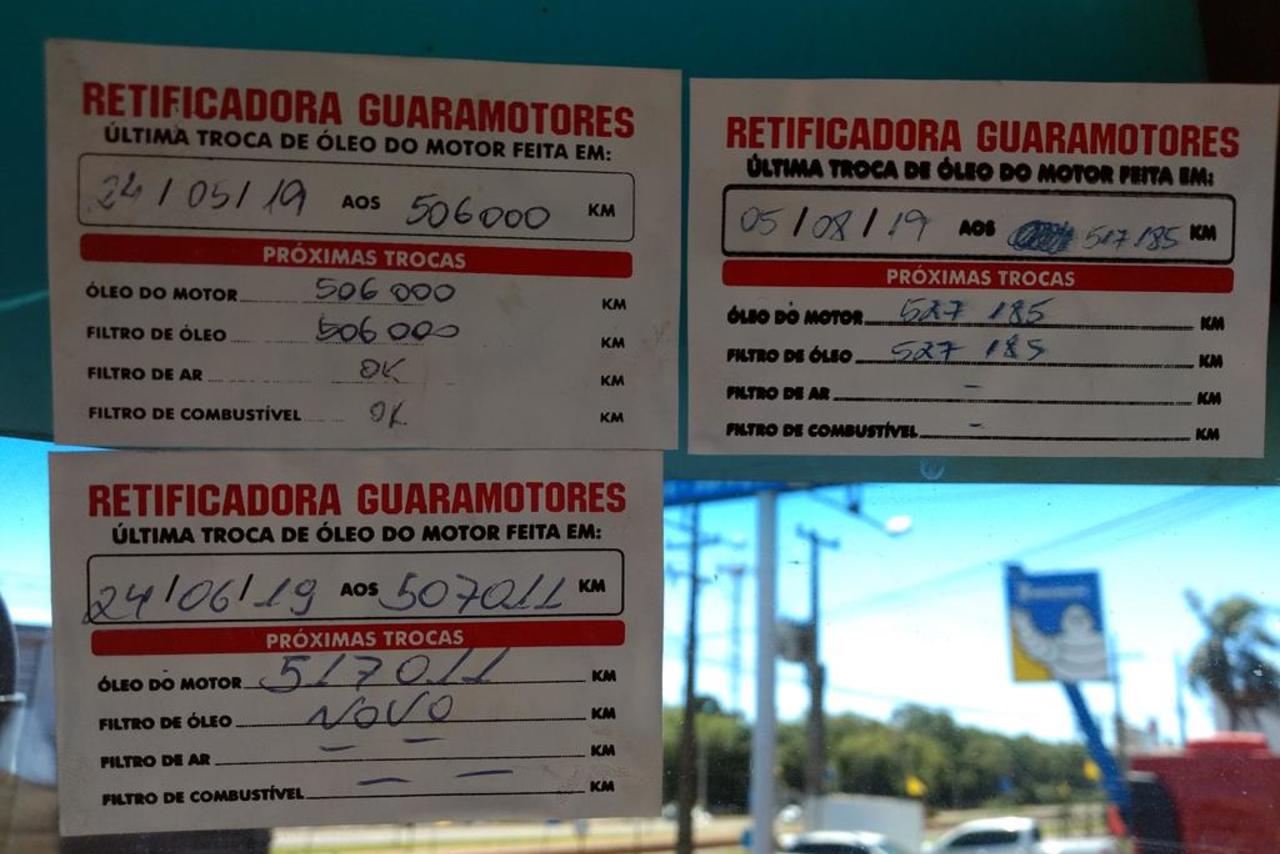 RETIFICADORA GUARAMOTORES
ÚLTIMA TROCA DE ÓLEO DO MOTOR FEITA EM:
24/05/19 AOS 506000 KM
PRÓXIMAS TROCAS
ÓLEO DO MOTOR 506 000 KM
FILTRO DE ÓLEO 506 000 KM
FILTRO DE AR OK KM
FILTRO DE COMBUSTÍVEL OK KM
RETIFICADORA GUARAMOTORES
ÚLTIMA TROCA DE ÓLEO DO MOTOR FEITA EM:
05/08/19 AOS 517185 KM
PRÓXIMAS TROCAS
ÓLEO DO MOTOR 527 185 KM
FILTRO DE ÓLEO 527 185 KM
FILTRO DE AR - KM
FILTRO DE COMBUSTÍVEL - KM
RETIFICADORA GUARAMOTORES
ÚLTIMA TROCA DE ÓLEO DO MOTOR FEITA EM:
24/06/19 AOS 507011 KM
PRÓXIMAS TROCAS
ÓLEO DO MOTOR 517011 KM
FILTRO DE ÓLEO NOVO KM
FILTRO DE AR - - KM
FILTRO DE COMBUSTÍVEL - - KM